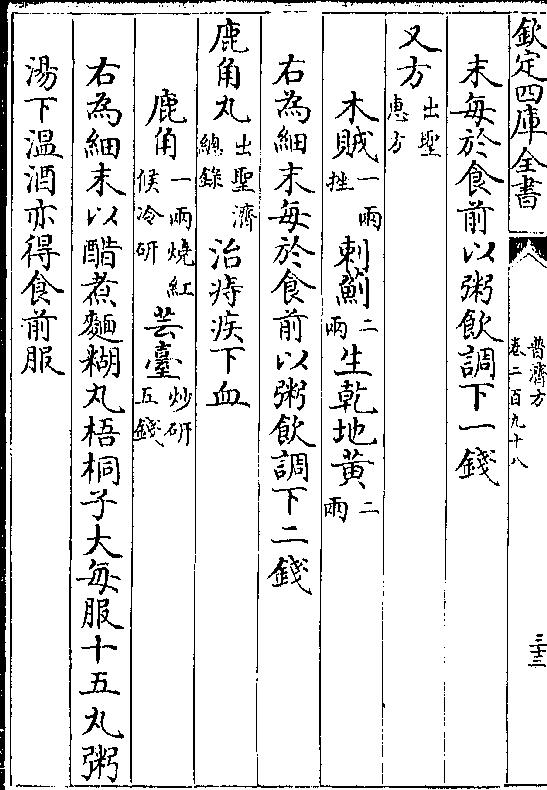 欽定四庫全書
普濟方
卷二百九十八
三十三
末每於食前以粥飲調下一錢
又方出聖惠方
木賊一兩挫 刺薊二兩 生乾地黃二兩
右為細末每於食前以粥飲調下二錢
鹿角丸出聖濟總錄 治痔疾下血
鹿角一兩燒紅候冷研 芸薹炒研五錢
右為細末以醋煮麵糊丸梧桐子大每服十五丸粥
湯下溫酒亦得食前服